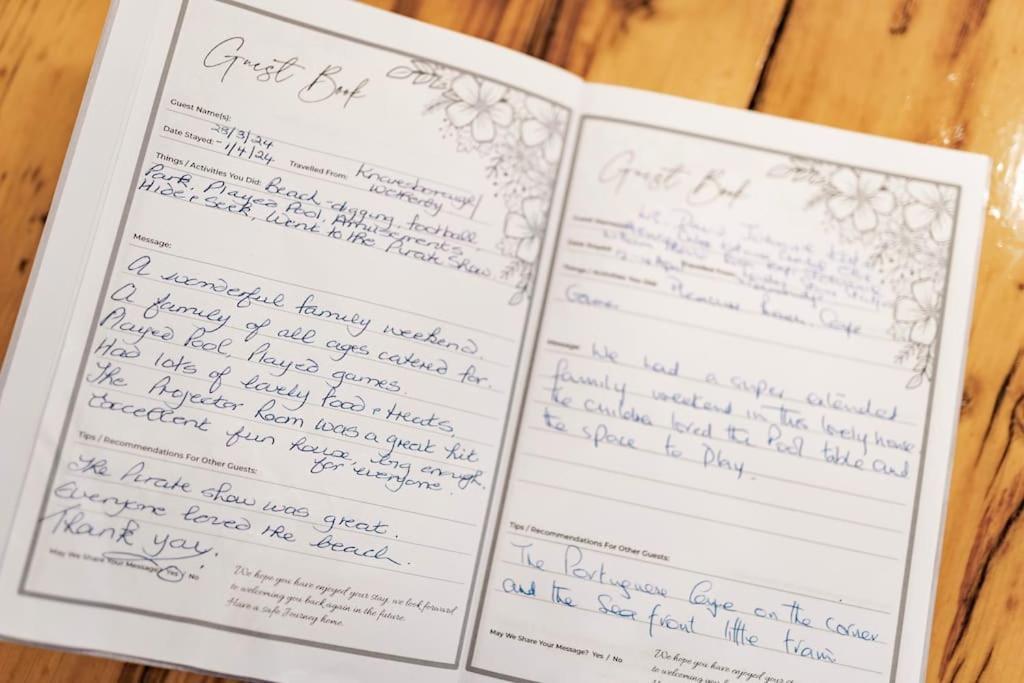 Guest Book
Guest Name(s):
Date Stayed: 28/3/24 - 1/4/24 Travelled From: Knaresborough/ Wetherby
Things / Activities You Did: Beach - digging, football,
Park, Played Pool, Amusements,
Hide & Seek, Went to the Pirate Show.
Message:
A wonderful family weekend.
A family of all ages catered for.
Played Pool, Played games.
Had lots of lovely food & treats.
The Projector Room was a great hit
Excellent fun house big enough
for everyone.
Tips / Recommendations For Other Guests:
The Pirate show was great.
Everyone loved the beach.
Thank you.
May We Share Your Message? Yes / No
We hope you have enjoyed your stay, we look forward
to welcoming you back again in the future.
Have a safe Journey home.
Guest Book
Guest Name(s):
Date Stayed:
Travelled From:
Things / Activities You Did: Pleasure Beach, Cafe
Games
Message: We had a super extended
family weekend in this lovely house
the children loved the Pool table and
the space to play.
Tips / Recommendations For Other Guests:
The Portuguese Cafe on the corner
and the Sea front little train.
May We Share Your Message? Yes / No
We hope you have enjoyed your
to welcoming you